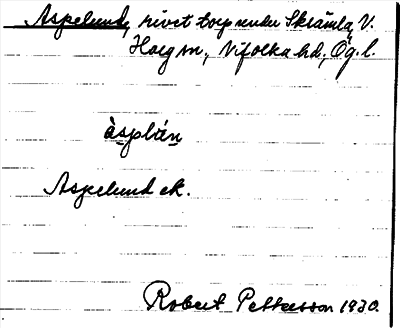 Aspelund, rivet torp under Skrämla V.
Harg sn, Vifolka hd, Ög. l.
àsplún
Aspelund ek.
Robert Pettersson 1930.